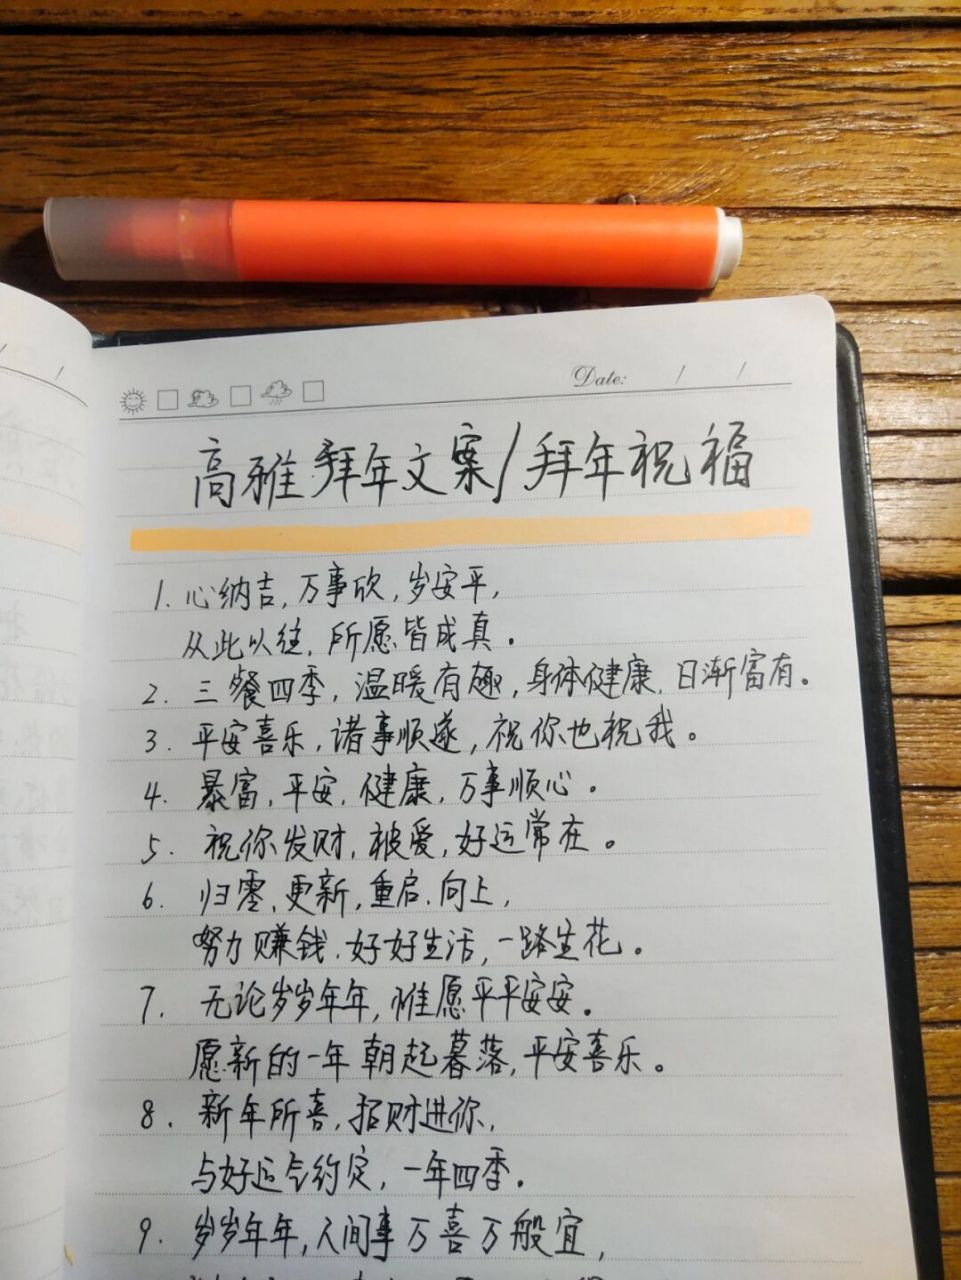 Date: / /
高雅拜年文案/拜年祝福
1. 心纳吉,万事欣,岁安平,
从此以往,所愿皆成真。
2. 三餐四季,温暖有趣,身体健康,日渐富有。
3. 平安喜乐,诸事顺遂,祝你也祝我。
4. 暴富,平安,健康,万事顺心。
5. 祝你发财,被爱,好运常在。
6. 归零,更新,重启,向上,
努力赚钱,好好生活,一路生花。
7. 无论岁岁年年,惟愿平平安安。
愿新的一年朝起暮落,平安喜乐。
8. 新年所喜,招财进你,
与好运气约定,一年四季。
9. 岁岁年年,人间事万喜万般宜,